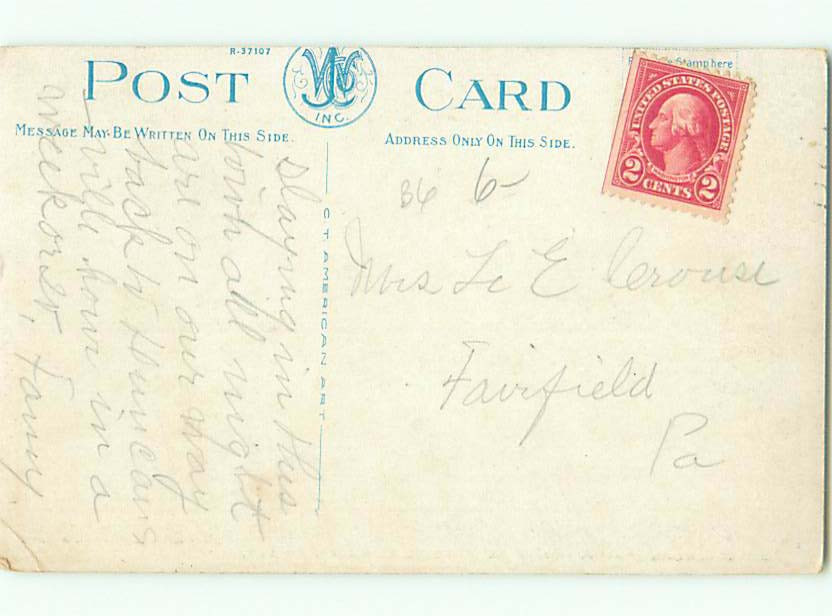 R-37107
POST CARD
WCO
INC.
Place Stamp here
MESSAGE MAY BE WRITTEN ON THIS SIDE.
ADDRESS ONLY ON THIS SIDE.
UNITED STATES POSTAGE
WASHINGTON
2 CENTS 2
C.T. AMERICAN ART
B4 6-
Mrs L E Crouse
Fairfield
Pa
staying in this
town all night
are on our way
back to
will home in a
week or so,
Fanny